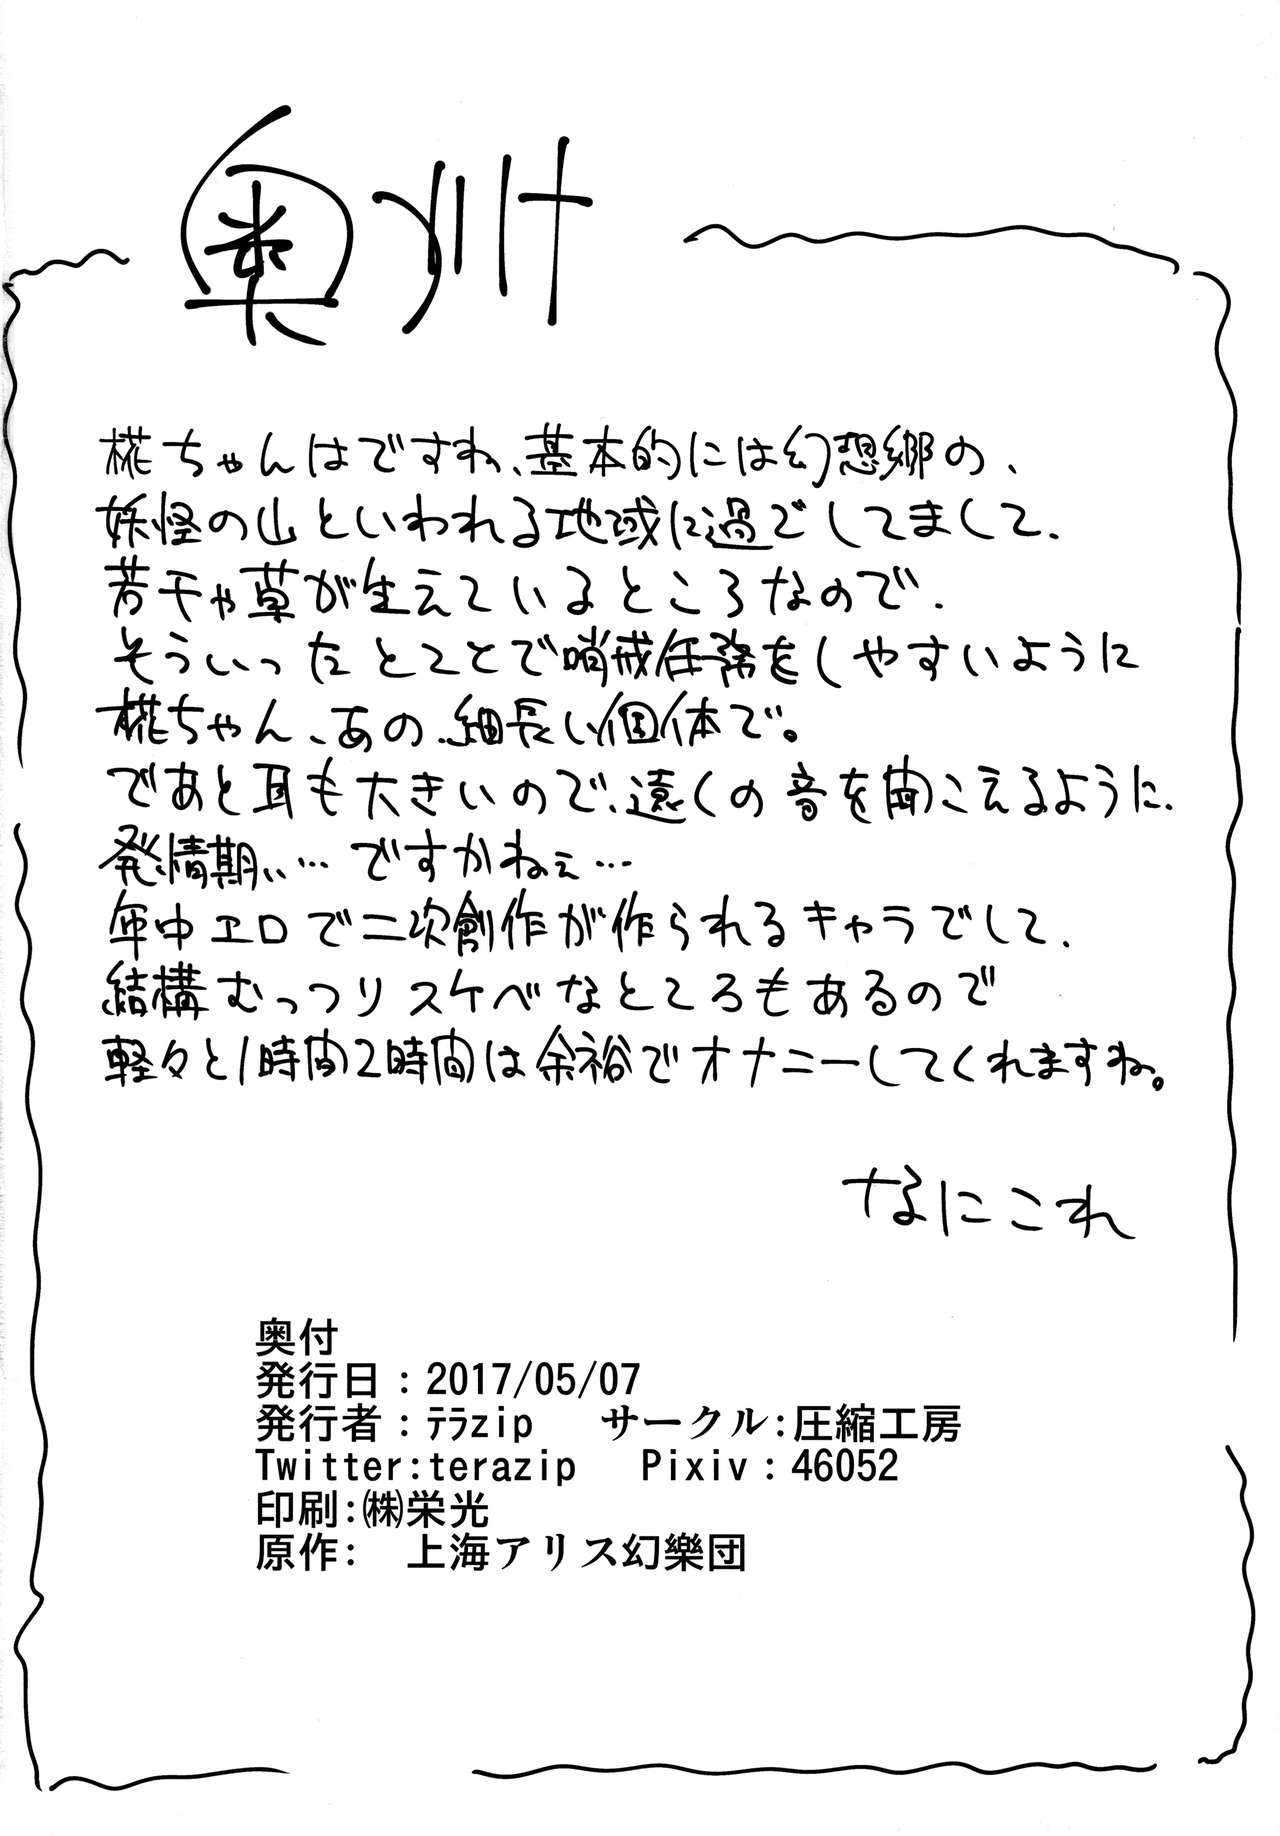 奥付
椛ちゃんはですね、基本的には幻想郷の、
妖怪の山といわれる地域に過ごしてまして、
若干や草が生えているところなので、
そういったとことで哨戒任務をしやすいように
椛ちゃん、あの、細長い個体で。
であと耳も大きいので、遠くの音を聞こえるように、
発情期ぃ…ですかねぇ…
年中エロで二次創作が作られるキャラでして、
結構むっつりスケベなところもあるので
軽々と1時間2時間は余裕でオナニーしてくれますね。
なにこれ
奥付
発行日:2017/05/07
発行者:ﾃﾗzip サークル:圧縮工房
Twitter:terazip Pixiv:46052
印刷:㈱栄光
原作: 上海アリス幻樂団